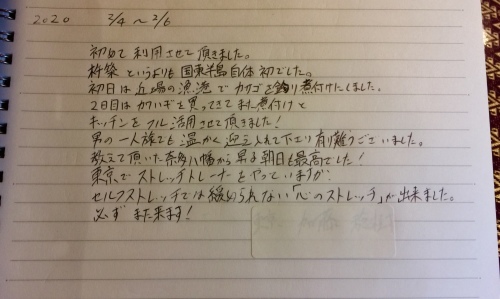 2020 2/4 〜 2/6
初めて利用させて頂きました。
杵築というよりも国東半島自体初でした。
初日は近場の漁港でカサゴを釣り煮付けにしました。
2日目はカワハギを買ってきてまた煮付けと
キッチンをフル活用させて頂きました!
男の一人旅でも温かく迎え入れて下さり有り難うございました。
教えて頂いた奈多八幡から昇る朝日も最高でした!
東京でストレッチトレーナーをやっていますが
セルフストレッチでは緩められない「心のストレッチ」が出来ました。
必ずまた来ます!